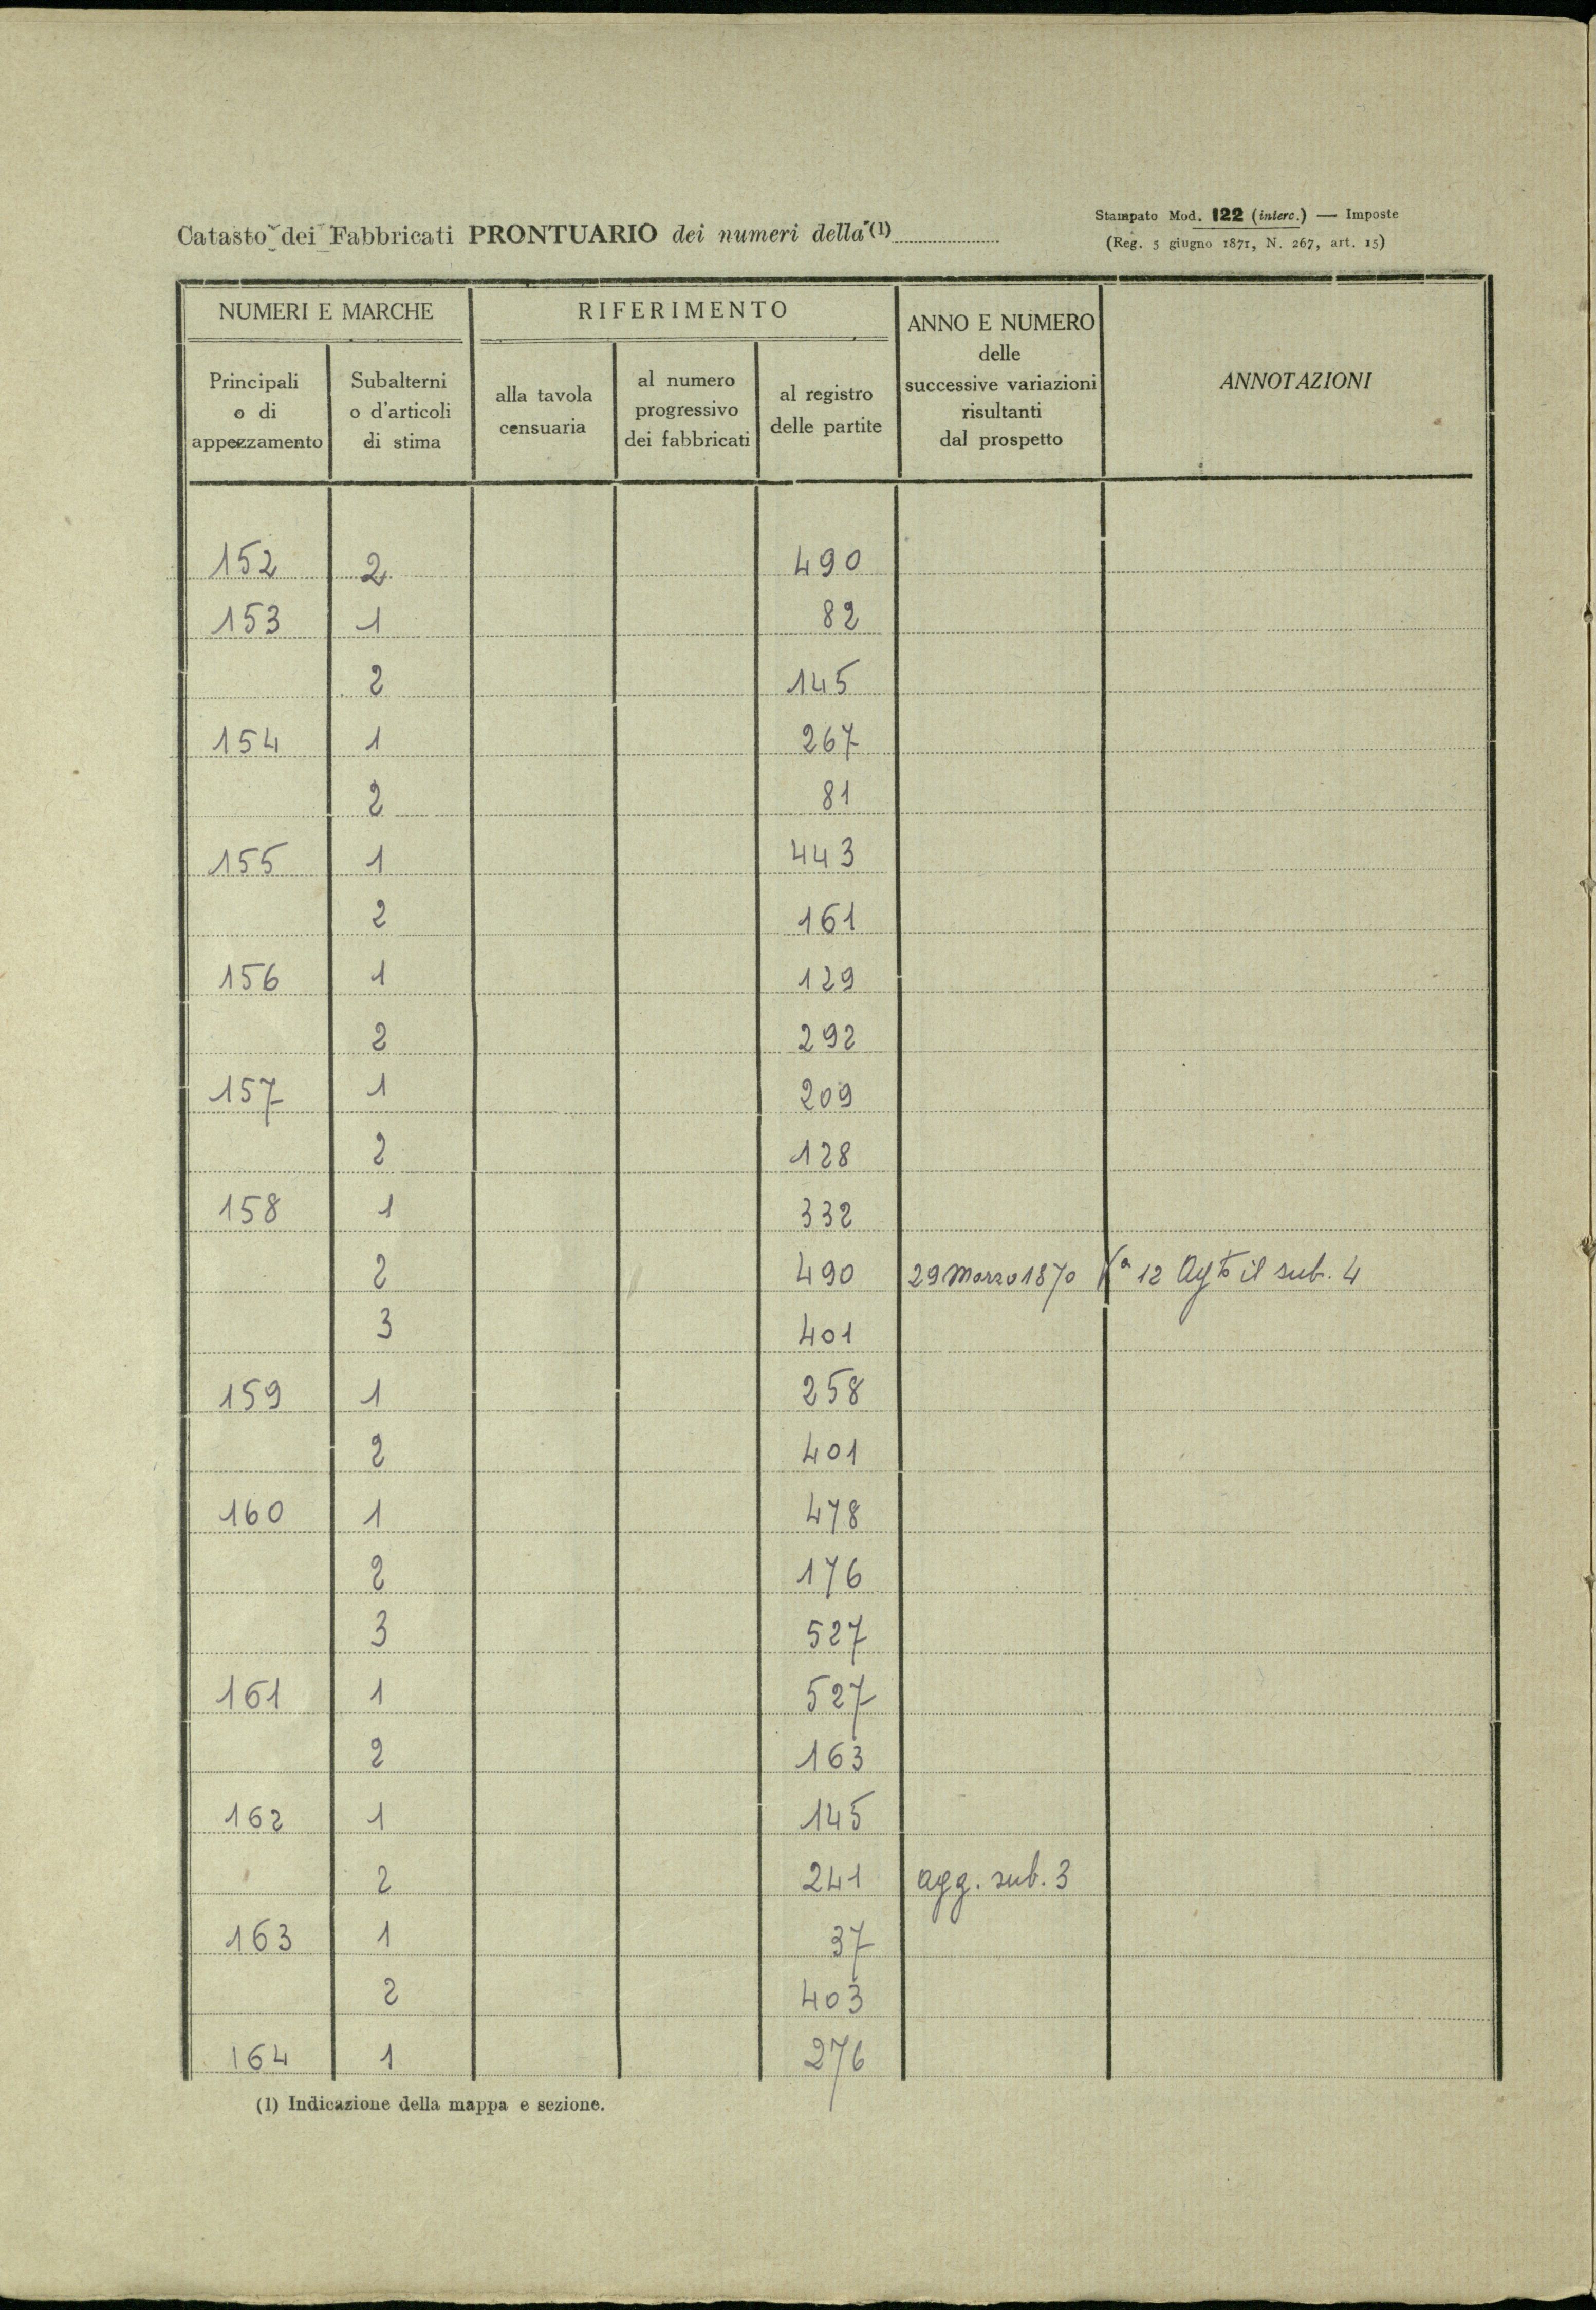 Catasto dei Fabbricati PRONTUARIO dei numeri della (1)
Stampato Mod. 122 (interc.) — Imposte
(Reg. 5 giugno 1871, N. 267, art. 15)
NUMERI E MARCHE
RIFERIMENTO
ANNO E NUMERO
delle
successive variazioni
risultanti
dal prospetto
ANNOTAZIONI
Principali
o di
appezzamento
Subalterni
o d'articoli
di stima
alla tavola
censuaria
al numero
progressivo
dei fabbricati
al registro
delle partite
152 2 490
153 1 82
2 145
154 1 267
2 81
155 1 443
2 161
156 1 129
2 292
157 1 209
2 128
158 1 332
2 490 29 Marzo 1870 12 il sub. 4
3 401
159 1 258
2 401
160 1 478
2 176
3 527
161 1 527
2 163
162 1 145
2 241 agg. sub. 3
163 1 37
2 403
164 1 276
(1) Indicazione della mappa e sezione.